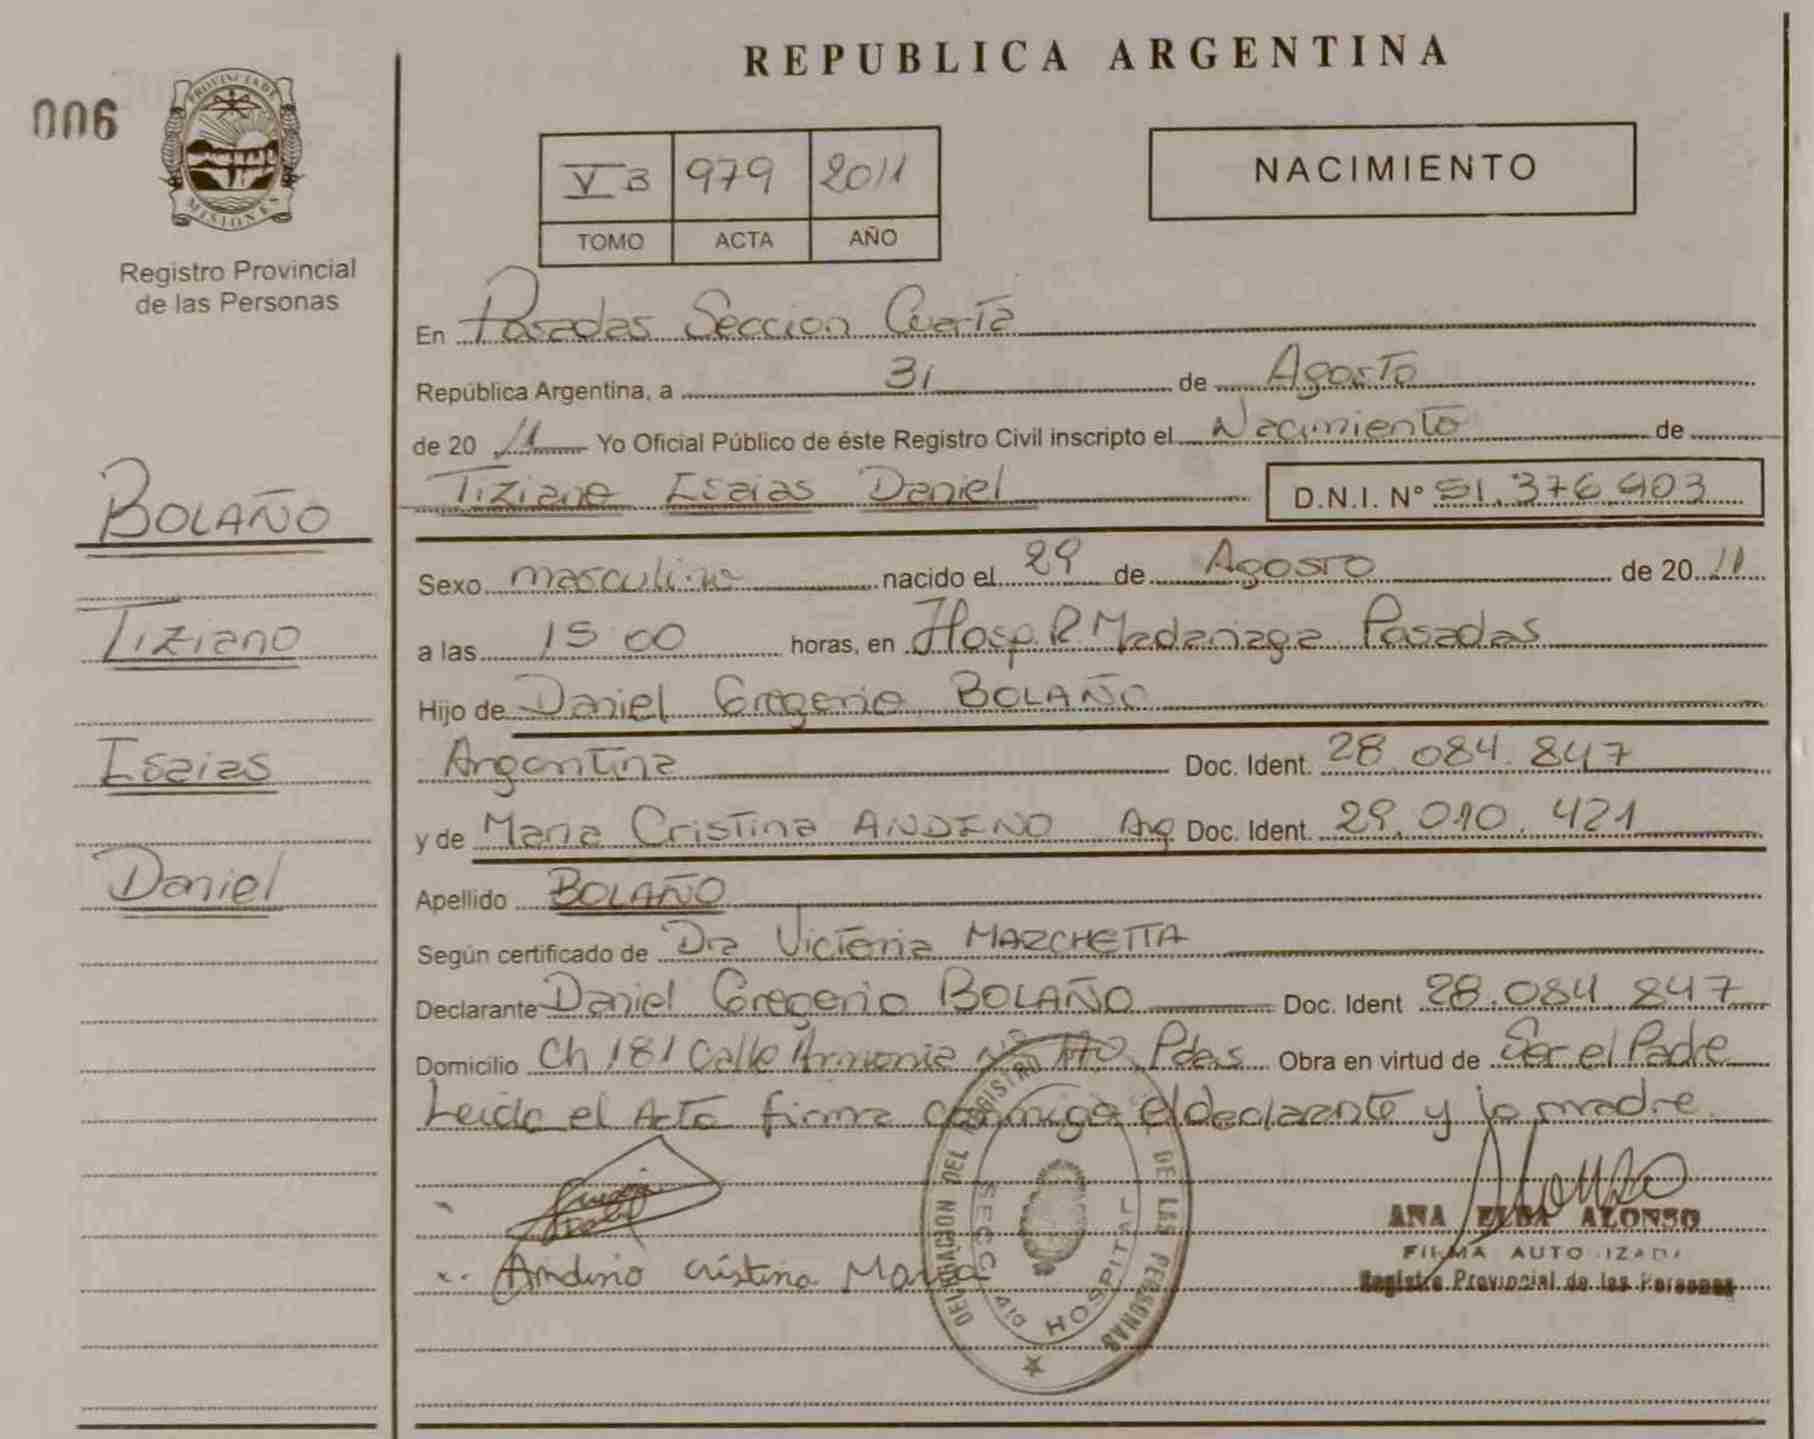 REPUBLICA ARGENTINA
006
PROVINCIA DE
MISIONES
Registro Provincial
de las Personas
V B 979 2011
TOMO ACTA AÑO
NACIMIENTO
En Posadas Seccion Cuarta
República Argentina, a 31 de Agosto
de 20 11 Yo Oficial Público de éste Registro Civil inscripto el Nacimiento de
Tiziano Isaias Daniel D.N.I. Nº 51.376.903
BOLAÑO
Tiziano
Isaias
Daniel
Sexo masculino nacido el 29 de Agosto de 20 11
a las 15 00 horas, en Hosp. R. Madariaga Posadas
Hijo de Daniel Gregorio BOLAÑO
Argentina Doc. Ident. 28.084.847
y de Maria Cristina ANDINO Arg Doc. Ident. 29.010.421
Apellido BOLAÑO
Según certificado de Dra Victoria MARCHETTA
Declarante Daniel Gregorio BOLAÑO Doc. Ident 28.084.847
Domicilio Ch 181 Calle Armonia Pdas Obra en virtud de Ser el Padre
Leida el Acta firma conmigo el declarante y la madre
Andino cristina Maria
DELEGACION DEL REGISTRO DE LAS PERSONAS
SECC 4ta HOSPITAL
Alonso
ANA ELBA ALONSO
FIRMA AUTORIZADA
Registro Provincial de las Personas